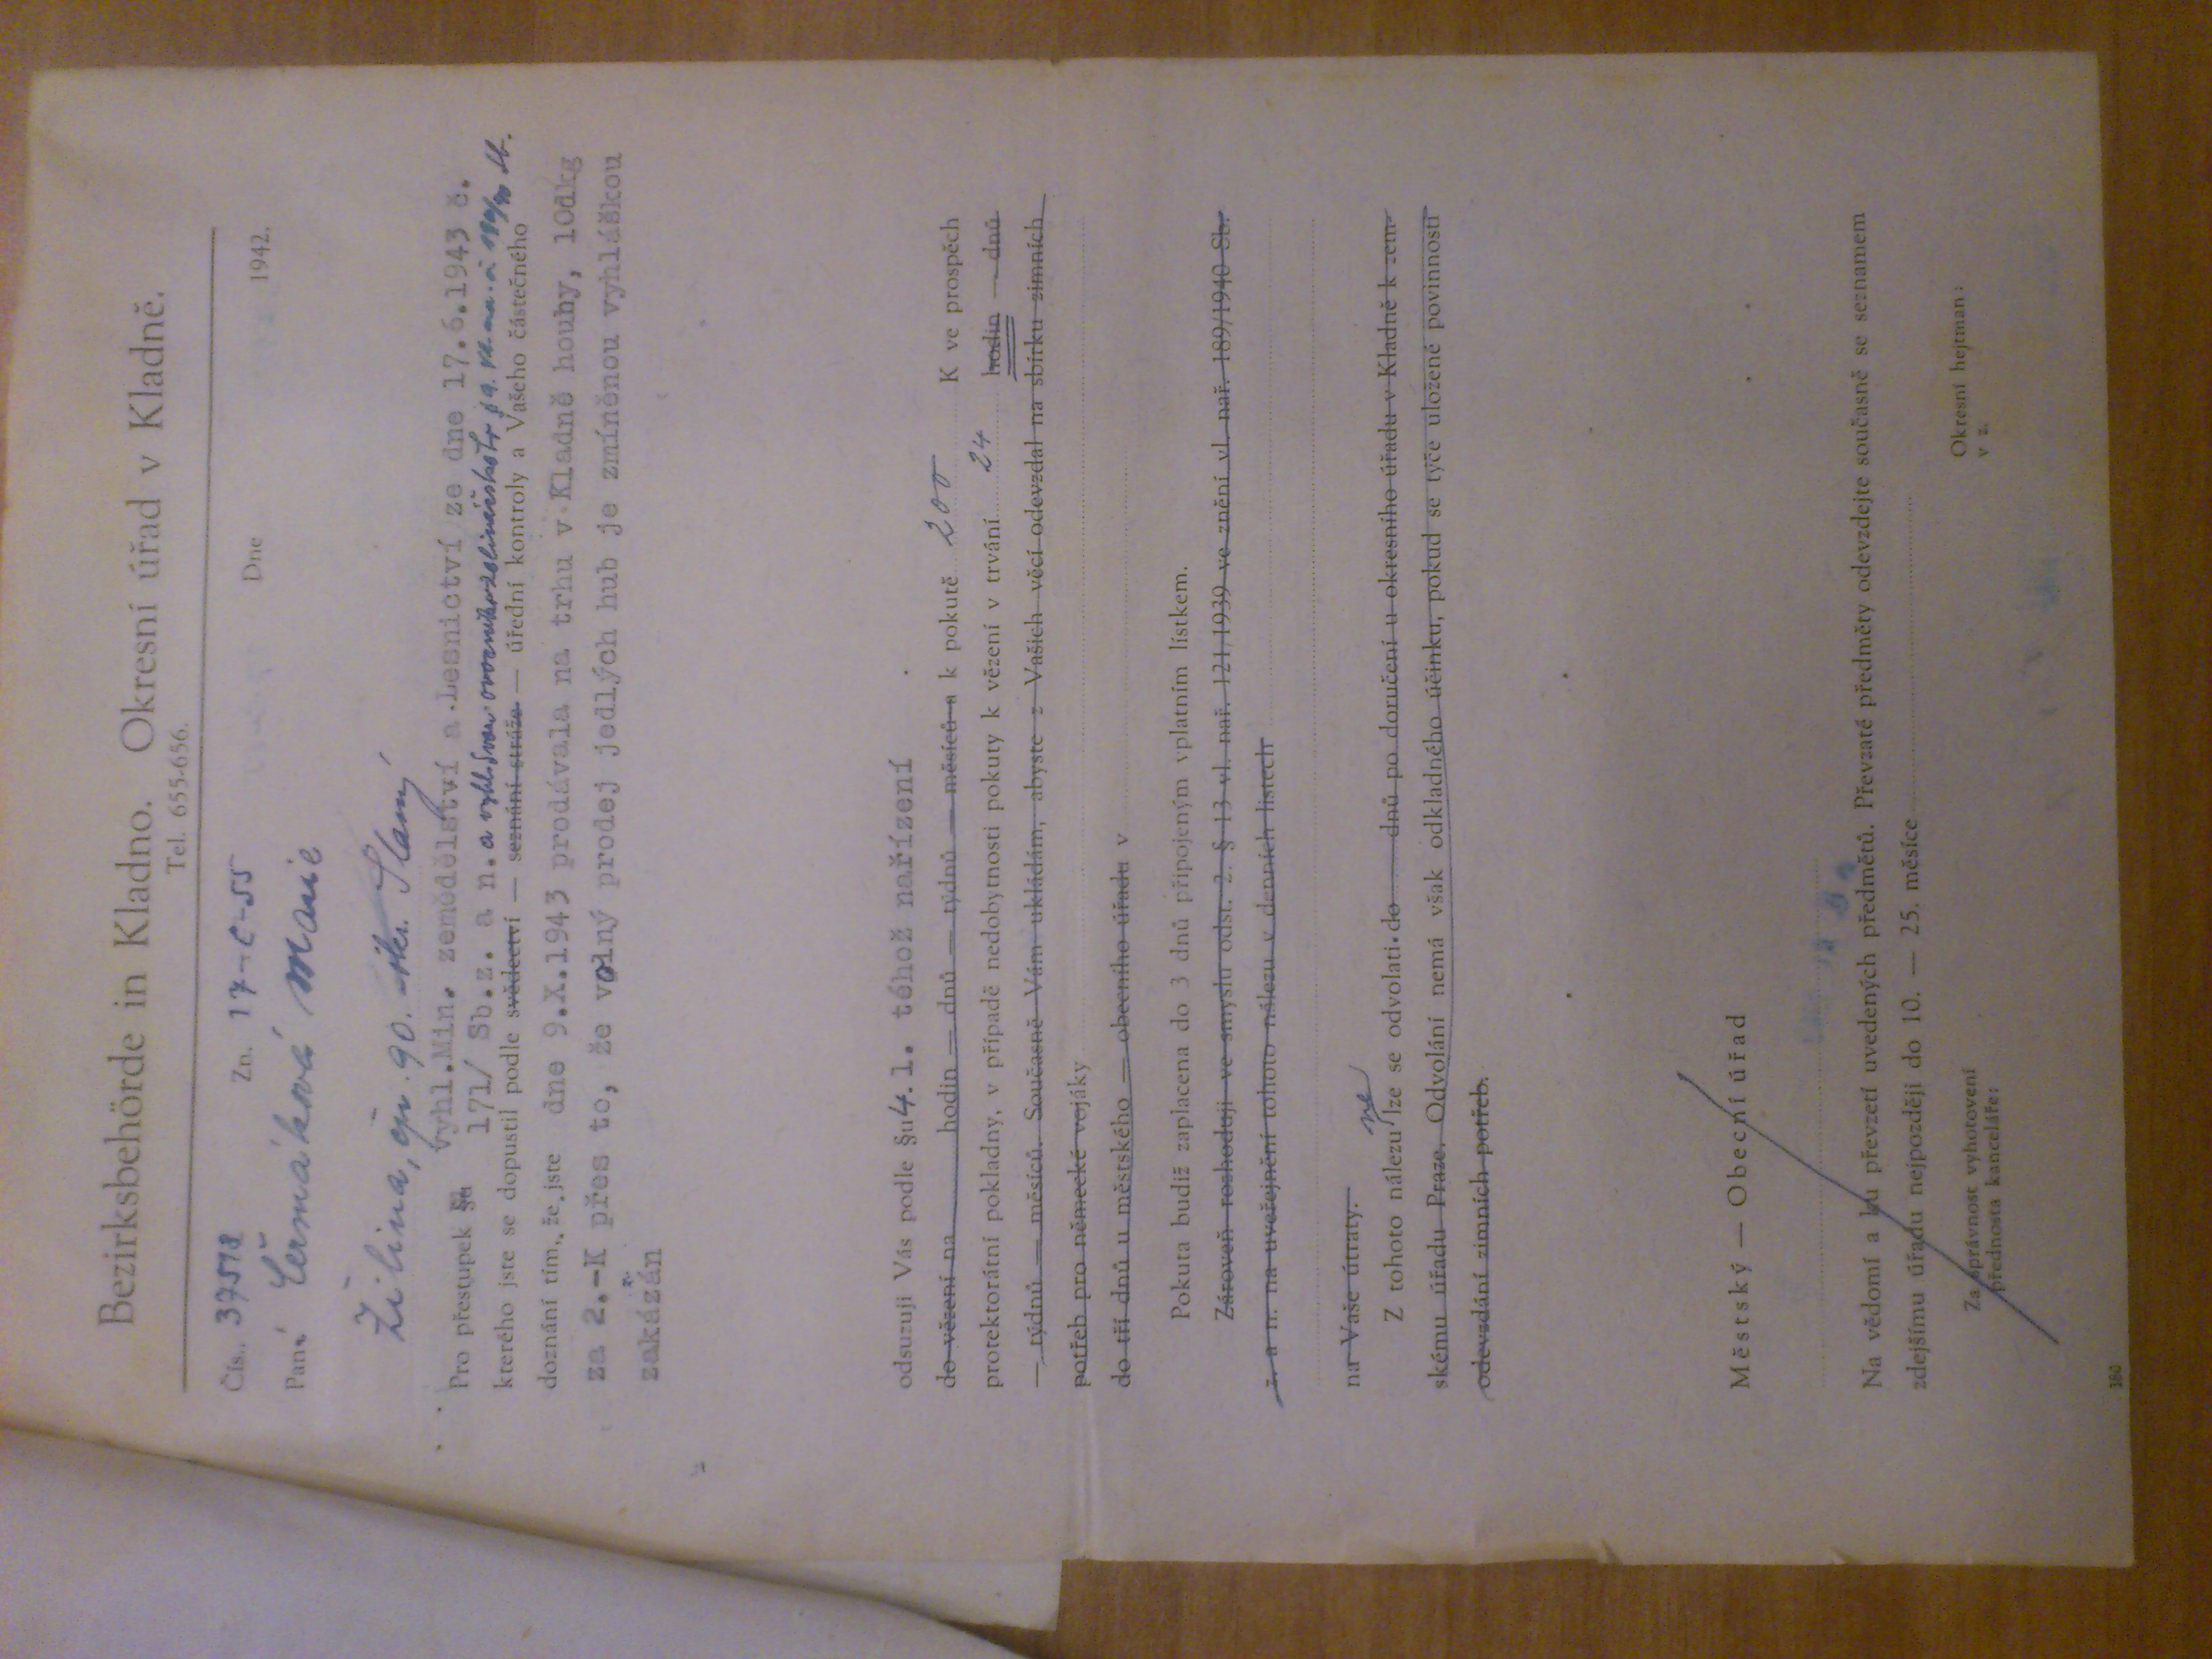 Bezirksbehörde in Kladno. Okresní úřad v Kladně.
Tel. 655-656.
Čís. 37518 Zn. 17-C-55 Dne 1942.
Paní Čermáková Marie
Žilina, čp. 90. okr. Slaný
vyhl.Min. zemědělství a Lesnictví ze dne 17.6.1943 č.
Pro přestupek §u 171/ Sb.z. a n. a vyhl. Svazu Sb.
kterého jste se dopustil podle svědectví — seznání stráže — úřední kontroly a Vašeho částečného
doznání tím, že jste dne 9.X.1943 prodávala na trhu v Kladně houby, 10dkg
za 2.-K přes to, že volný prodej jedlých hub je zmíněnou vyhláškou
zakázán
odsuzuji Vás podle §u 4. 1. téhož nařízení
do vězení na hodin — dnů — týdnů — měsíců a k pokutě 200 K ve prospěch
protektorátní pokladny, v případě nedobytnosti pokuty k vězení v trvání 24 hodin — dnů
— týdnů — měsíců. Současně Vám ukládám, abyste z Vašich věcí odevzdal na sbírku zimních
potřeb pro německé vojáky
do tří dnů u městského — obecního úřadu v
Pokuta budiž zaplacena do 3 dnů připojeným vplatním lístkem.
Zároveň rozhoduji ve smyslu odst. 2. § 13 vl. nař. 121/1939 ve znění vl. nař. 189/1940 Sb.
z. a n. na uveřejnění tohoto nálezu v denních listech
na Vaše útraty.
Z tohoto nálezu ne lze se odvolati. do dnů po doručení u okresního úřadu v Kladně k zem-
skému úřadu Praze. Odvolání nemá však odkladného účinku, pokud se týče uložené povinnosti
odevzdání zimních potřeb.
Městský — Obecní úřad
Na vědomí a ku převzetí uvedených předmětů. Převzaté předměty odevzdejte současně se seznamem
zdejšímu úřadu nejpozději do 10. — 25. měsíce
Za správnost vyhotovení
přednosta kanceláře:
Okresní hejtman:
v z.
380